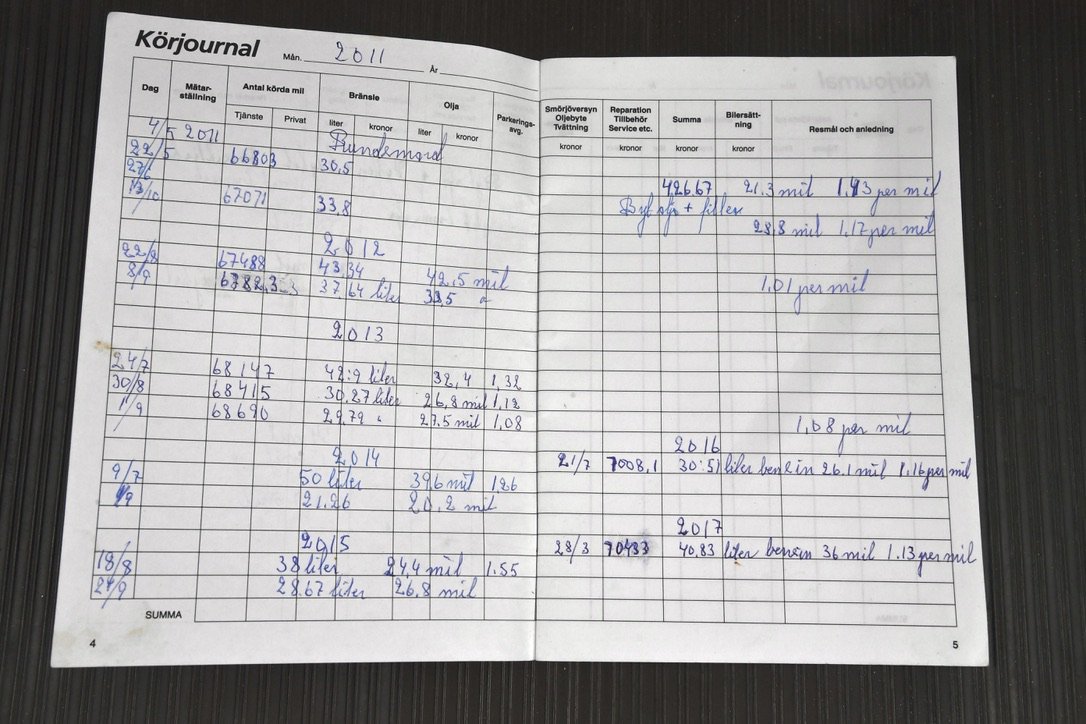 Körjournal Mån. 2011 År
Dag Mätar-ställning Antal körda mil Bränsle Olja Parkerings-avg.
Tjänste Privat liter kronor liter kronor
4/5 2011 Rundemord
22/5 66803 30,5
27/6
13/10 67071 33,8
2012
22/2 67488 43,34 42,5 mil
8/9 37,64 liter 33,5
2013
24/7 68147 42:9 liter 32,4 1,32
30/8 68415 30,27 liter 26,8 mil 1,12
1/9 68690 29,79 " 27.5 mil 1,08
2014
9/7 50 liter 39,6 mil 126
21.26 20,2 mil
2015
18/8 38 liter 24,4 mil 1.55
24/9 28.67 liter 26,8 mil
SUMMA
4
Smörjöversyn Oljebyte Tvättning Reparation Tillbehör Service etc. Summa Bilersätt-ning Resmål och anledning
kronor kronor kronor kronor
426.67 21.3 mil 1,43 per mil
Byt olja + filter
28,8 mil 1,17 per mil
1,01 per mil
1,08 per mil
2016
21/7 7008,1 30:51 liter bensin 26.1 mil 1,16 per mil
2017
28/3 70433 40,83 liter bensin 36 mil 1.13 per mil
5